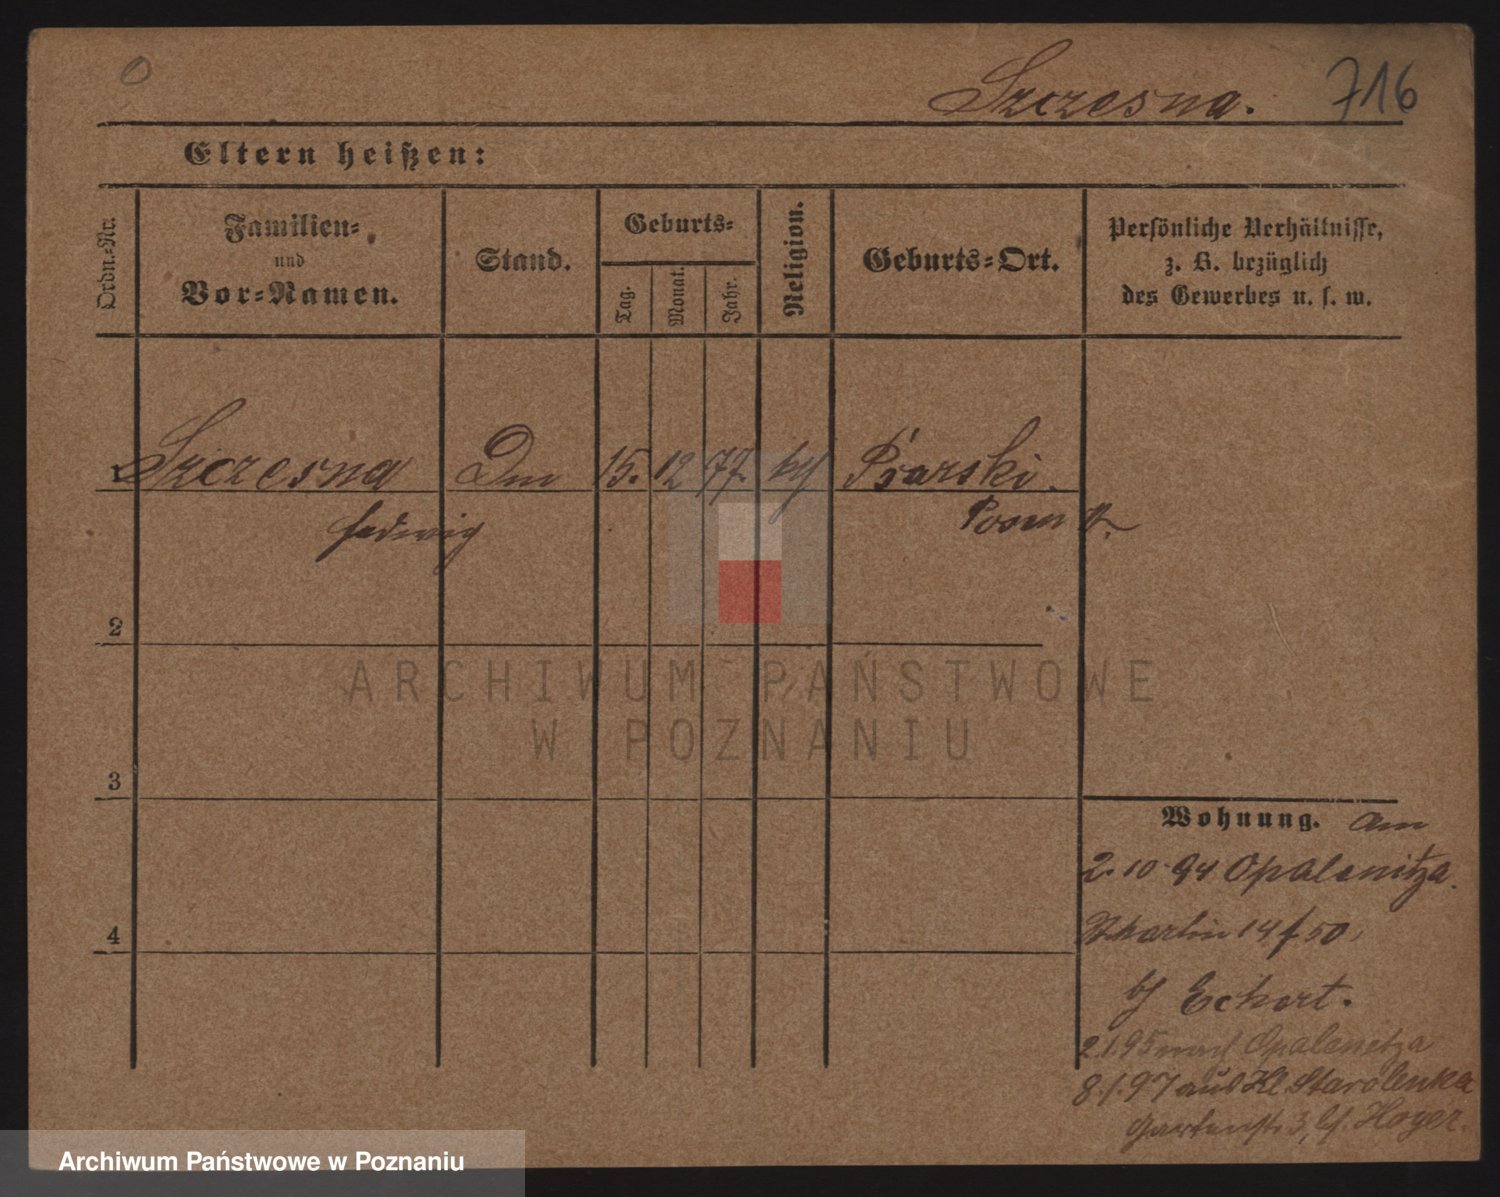 0
Szczesna. 716
Eltern heißen:
Ordn.-Nr.
Familien-
und
Vor-Namen.
Stand.
Geburts-
Tag.
Monat.
Jahr.
Religion.
Geburts-Ort.
Persönliche Verhältnisse,
z. B. bezüglich
des Gewerbes u. s. w.
Szczesna 15. 12 77. Psarski.
Hedwig Posen
2
3
4
Wohnung. am
2. 10. 94 Opalenitza.
Martin 14 f 50,
bj Eckert.
2.1.95 nach Opalenitza
8.1.97 aus Kl Starolenka
Gartenstr 3, bj. Hoyer.
ARCHIWUM PAŃSTWOWE
W POZNANIU
Archiwum Państwowe w Poznaniu